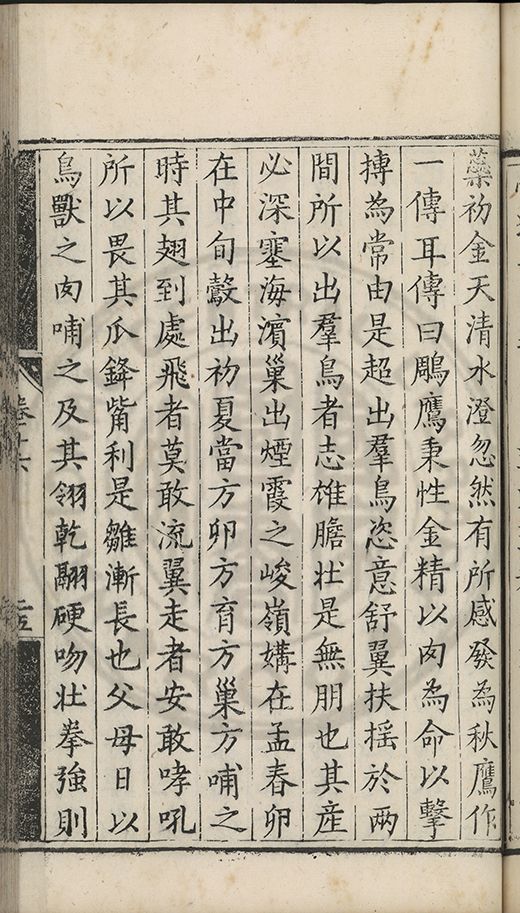 蘂初金天清水澄忽然有所感發為秋鷹作
一傳耳傳曰鵰鷹秉性金精以肉為命以擊
搏為常由是超出羣鳥恣意舒翼扶揺於兩
間所以出羣鳥者志雄膽壮是無朋也其産
必深塞海濵巢出煙霞之峻嶺媾在孟春卵
在中旬鷇出初夏當方卵方育方巢方哺之
時其翅到處飛者莫敢流翼走者安敢哮吼
所以畏其爪鋒觜利是雛漸長也父母日以
鳥獸之肉哺之及其翎乾翮硬吻壮拳強則
卷十六
二五